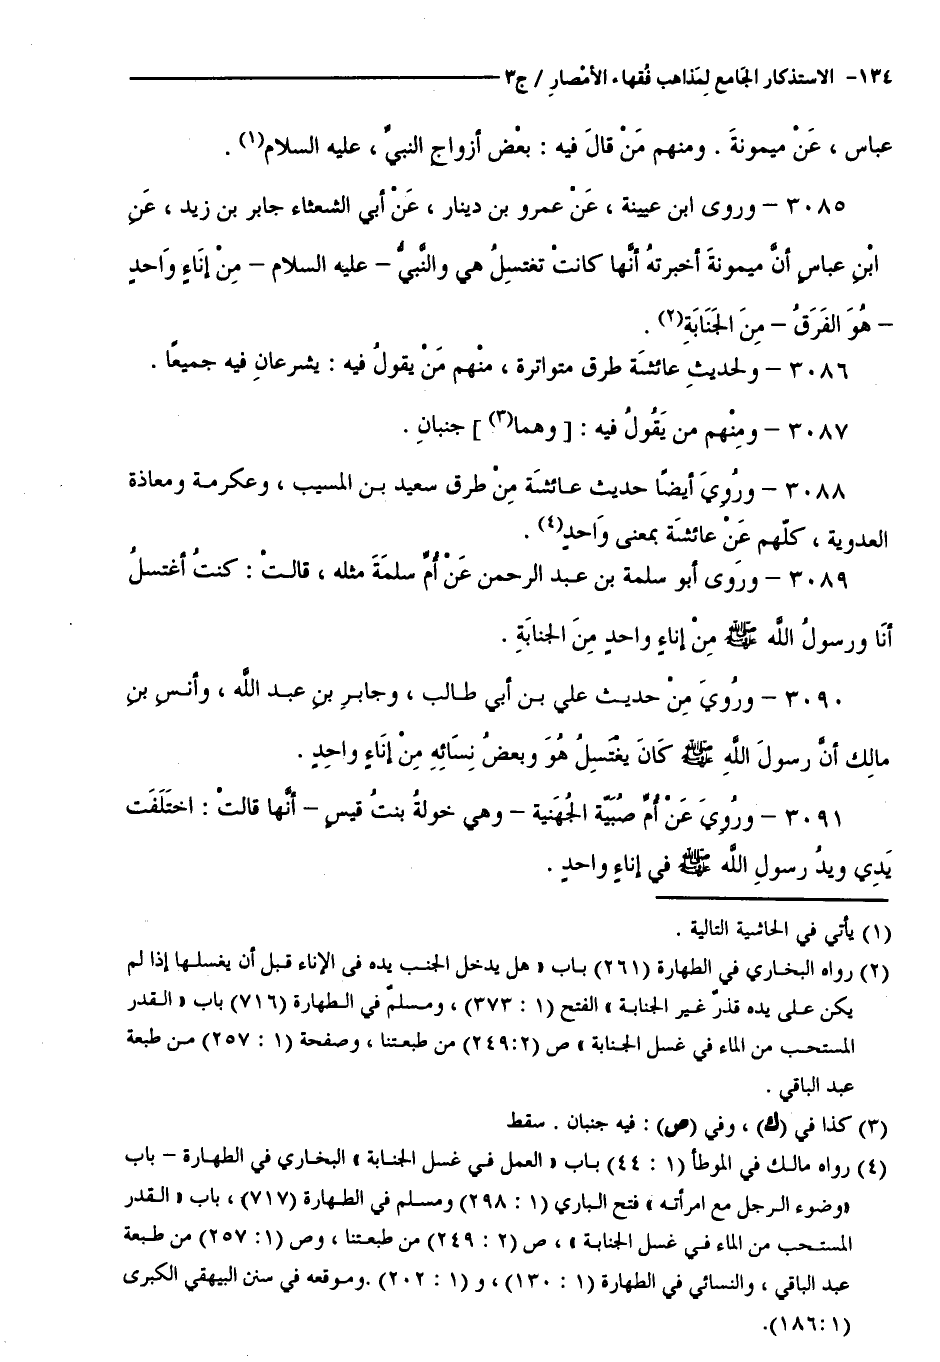 ١٣٤- الاستذكار الجَامع لِمَذاهب فُقهاء الأمْصارِ / ج٣
عباس ، عَنْ ميمونةَ . ومنهم مَنْ قالَ فيه : بعْض أزواجِ النبيِّ ، عليه السلام(١) .
٣٠٨٥ – وروى ابن عيينة ، عَنْ عمرو بن دينار ، عَنْ أبي الشعثاء جابر بن زيد ، عَنِ
ابْنِ عباسٍ أنَّ ميمونةَ أخبرتهُ أنَّها كانتْ تغتسلُ هي والنَّبيُّ – عليه السلام – مِنْ إنَاءٍ وَاحدٍ
– هُوَ الفَرَقُ – مِنَ الجَنَابَةِ(٢) .
٣٠٨٦ – ولحديثِ عائشَة طرق متواترة ، منْهم مَنْ يقولُ فيه : يشرعانِ فيه جميعًا .
٣٠٨٧ – ومِنْهم من يَقُولُ فيه : [ وهما(٣) ] جنبانِ .
٣٠٨٨ – ورُوِيَ أيضًا حديث عـائشَة مِنْ طرق سعيد بـن المسيب ، وعكرمـة ومعاذة
العدوية ، كلّهم عَنْ عائشَة بمعنى وَاحدٍ(٤) .
٣٠٨٩ – ورَوى أبو سلمة بن عـبد الرحمن عَنْ أُمِّ سلمَةَ مثله ، قالـتْ : كنتُ أغتسلُ
أنَا ورسولُ اللَّه ﷺ مِنْ إناءٍ واحدٍ مِنَ الجنابَةِ .
٣٠٩٠ – ورُويَ مِنْ حديـث علي بـن أبي طـالب ، وجـابـرِ بنِ عبـد اللَّه ، وأنـسِ بنِ
مالِك أنَّ رسولَ اللَّهِ ﷺ كَانَ يغْتَسِلُ هُوَ وبعضُ نِسَائِهِ مِنْ إنَاءٍ واحِدٍ .
٣٠٩١ – ورُوِيَ عَنْ أُمِّ صُبَيَّة الجُهَنية – وهي خولةُ بنتُ قيسٍ – أنَّها قالتْ : اختَلَفَت
يَدِي ويدُ رسولِ اللَّه ﷺ في إناءٍ واحدٍ .
(١) يأتي في الحاشية التالية .
(٢) رواه البخاري في الطهارة (٢٦١) بـاب « هل يدخل الجنـب يده فى الإناء قـبل أن يغسلـها إذا لم
يكن علـى يده قذرٌ غير الجنابة » الفتح (١ : ٣٧٣) ، ومـسلم في الـطهارة (٧١٦) باب « الـقدر
المستحـب من الماء في غسل الجنابة » ص (٢٤٩:٢) من طبعـتنا ، وصفحة (١ : ٢٥٧) مـن طبعة
عبد الباقي .
(٣) كذا في (ك) ، وفي (ص) : فيه جنبان . سقط
(٤) رواه مالـك في الموطأ (١ : ٤٤) بـاب « العمل فـي غسل الجنابة » البخاري في الطهارة – باب
«وضوء الـرجل مع امرأتـه » فتح البـاري (١ : ٢٩٨) ومسلم في الطهارة (٧١٧) ، باب « الـقدر
المستحـب من الماء فـي غسل الجنابـة » ، ص (٢ : ٢٤٩) من طبعتنا ، وص (١: ٢٥٧) من طـبعة
عبد الباقي ، والنسائي في الطهارة (١ : ١٣٠) ، و (١ : ٢٠٢) .ومـوقعه في سنن البيهقي الكبرى
(١٨٦:١).